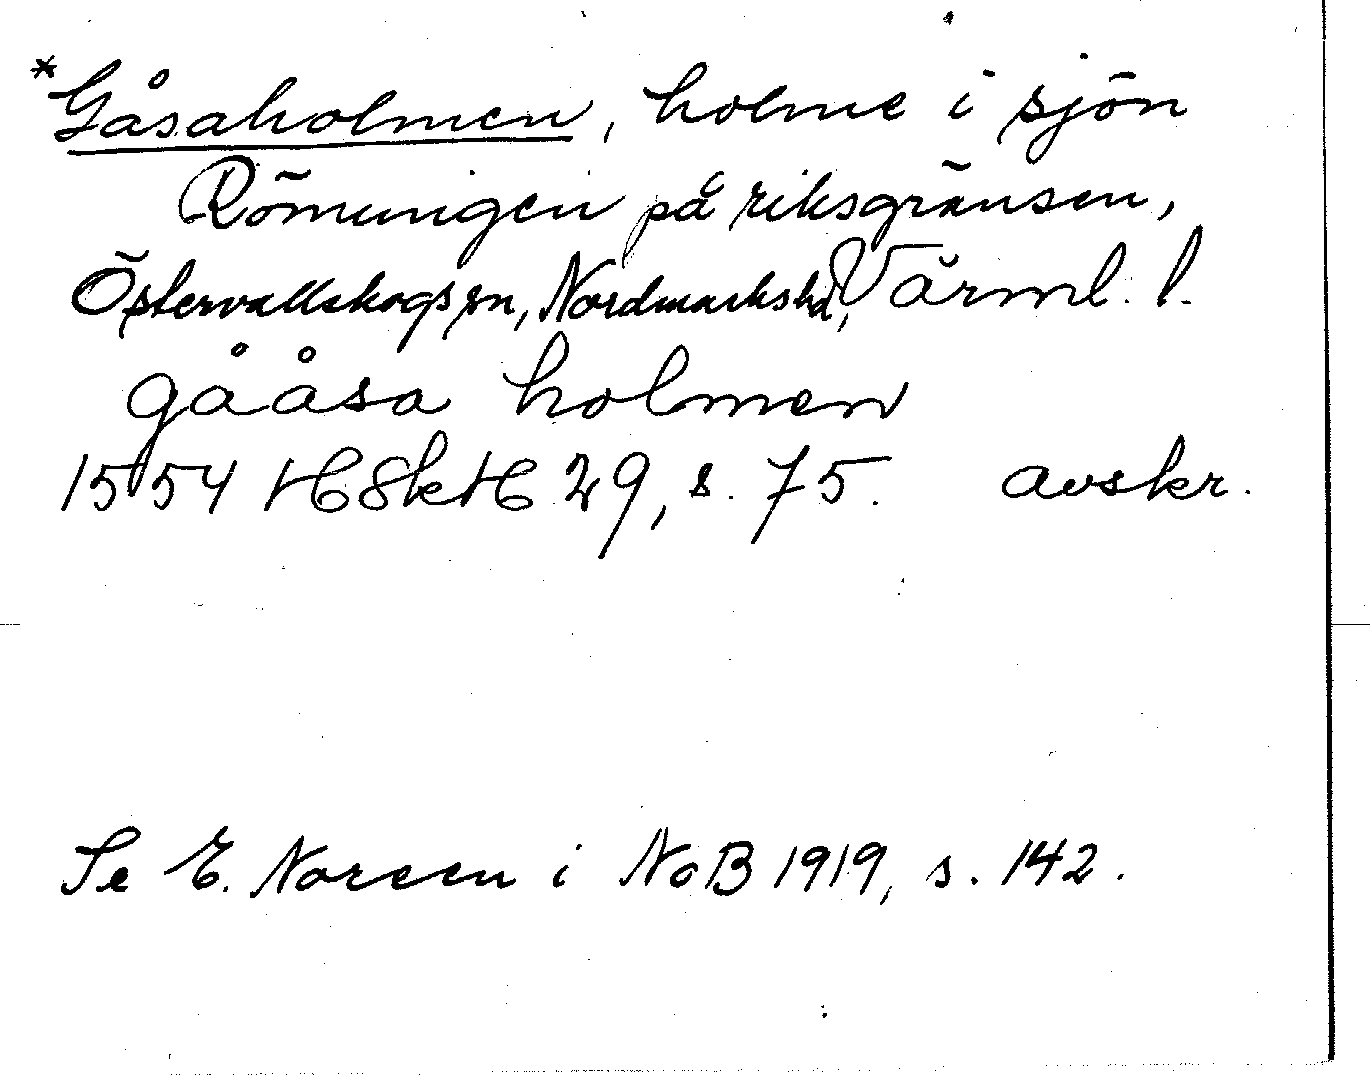 *Gåsaholmen, holme i sjön
Römungen på riksgränsen,
Östervallskogs sn, Nordmarks hd, Värml. l.
gååsa holmen
1554 HSkH 29, s. 75. avskr.
Se E. Noreen i NoB 1919, s. 142.